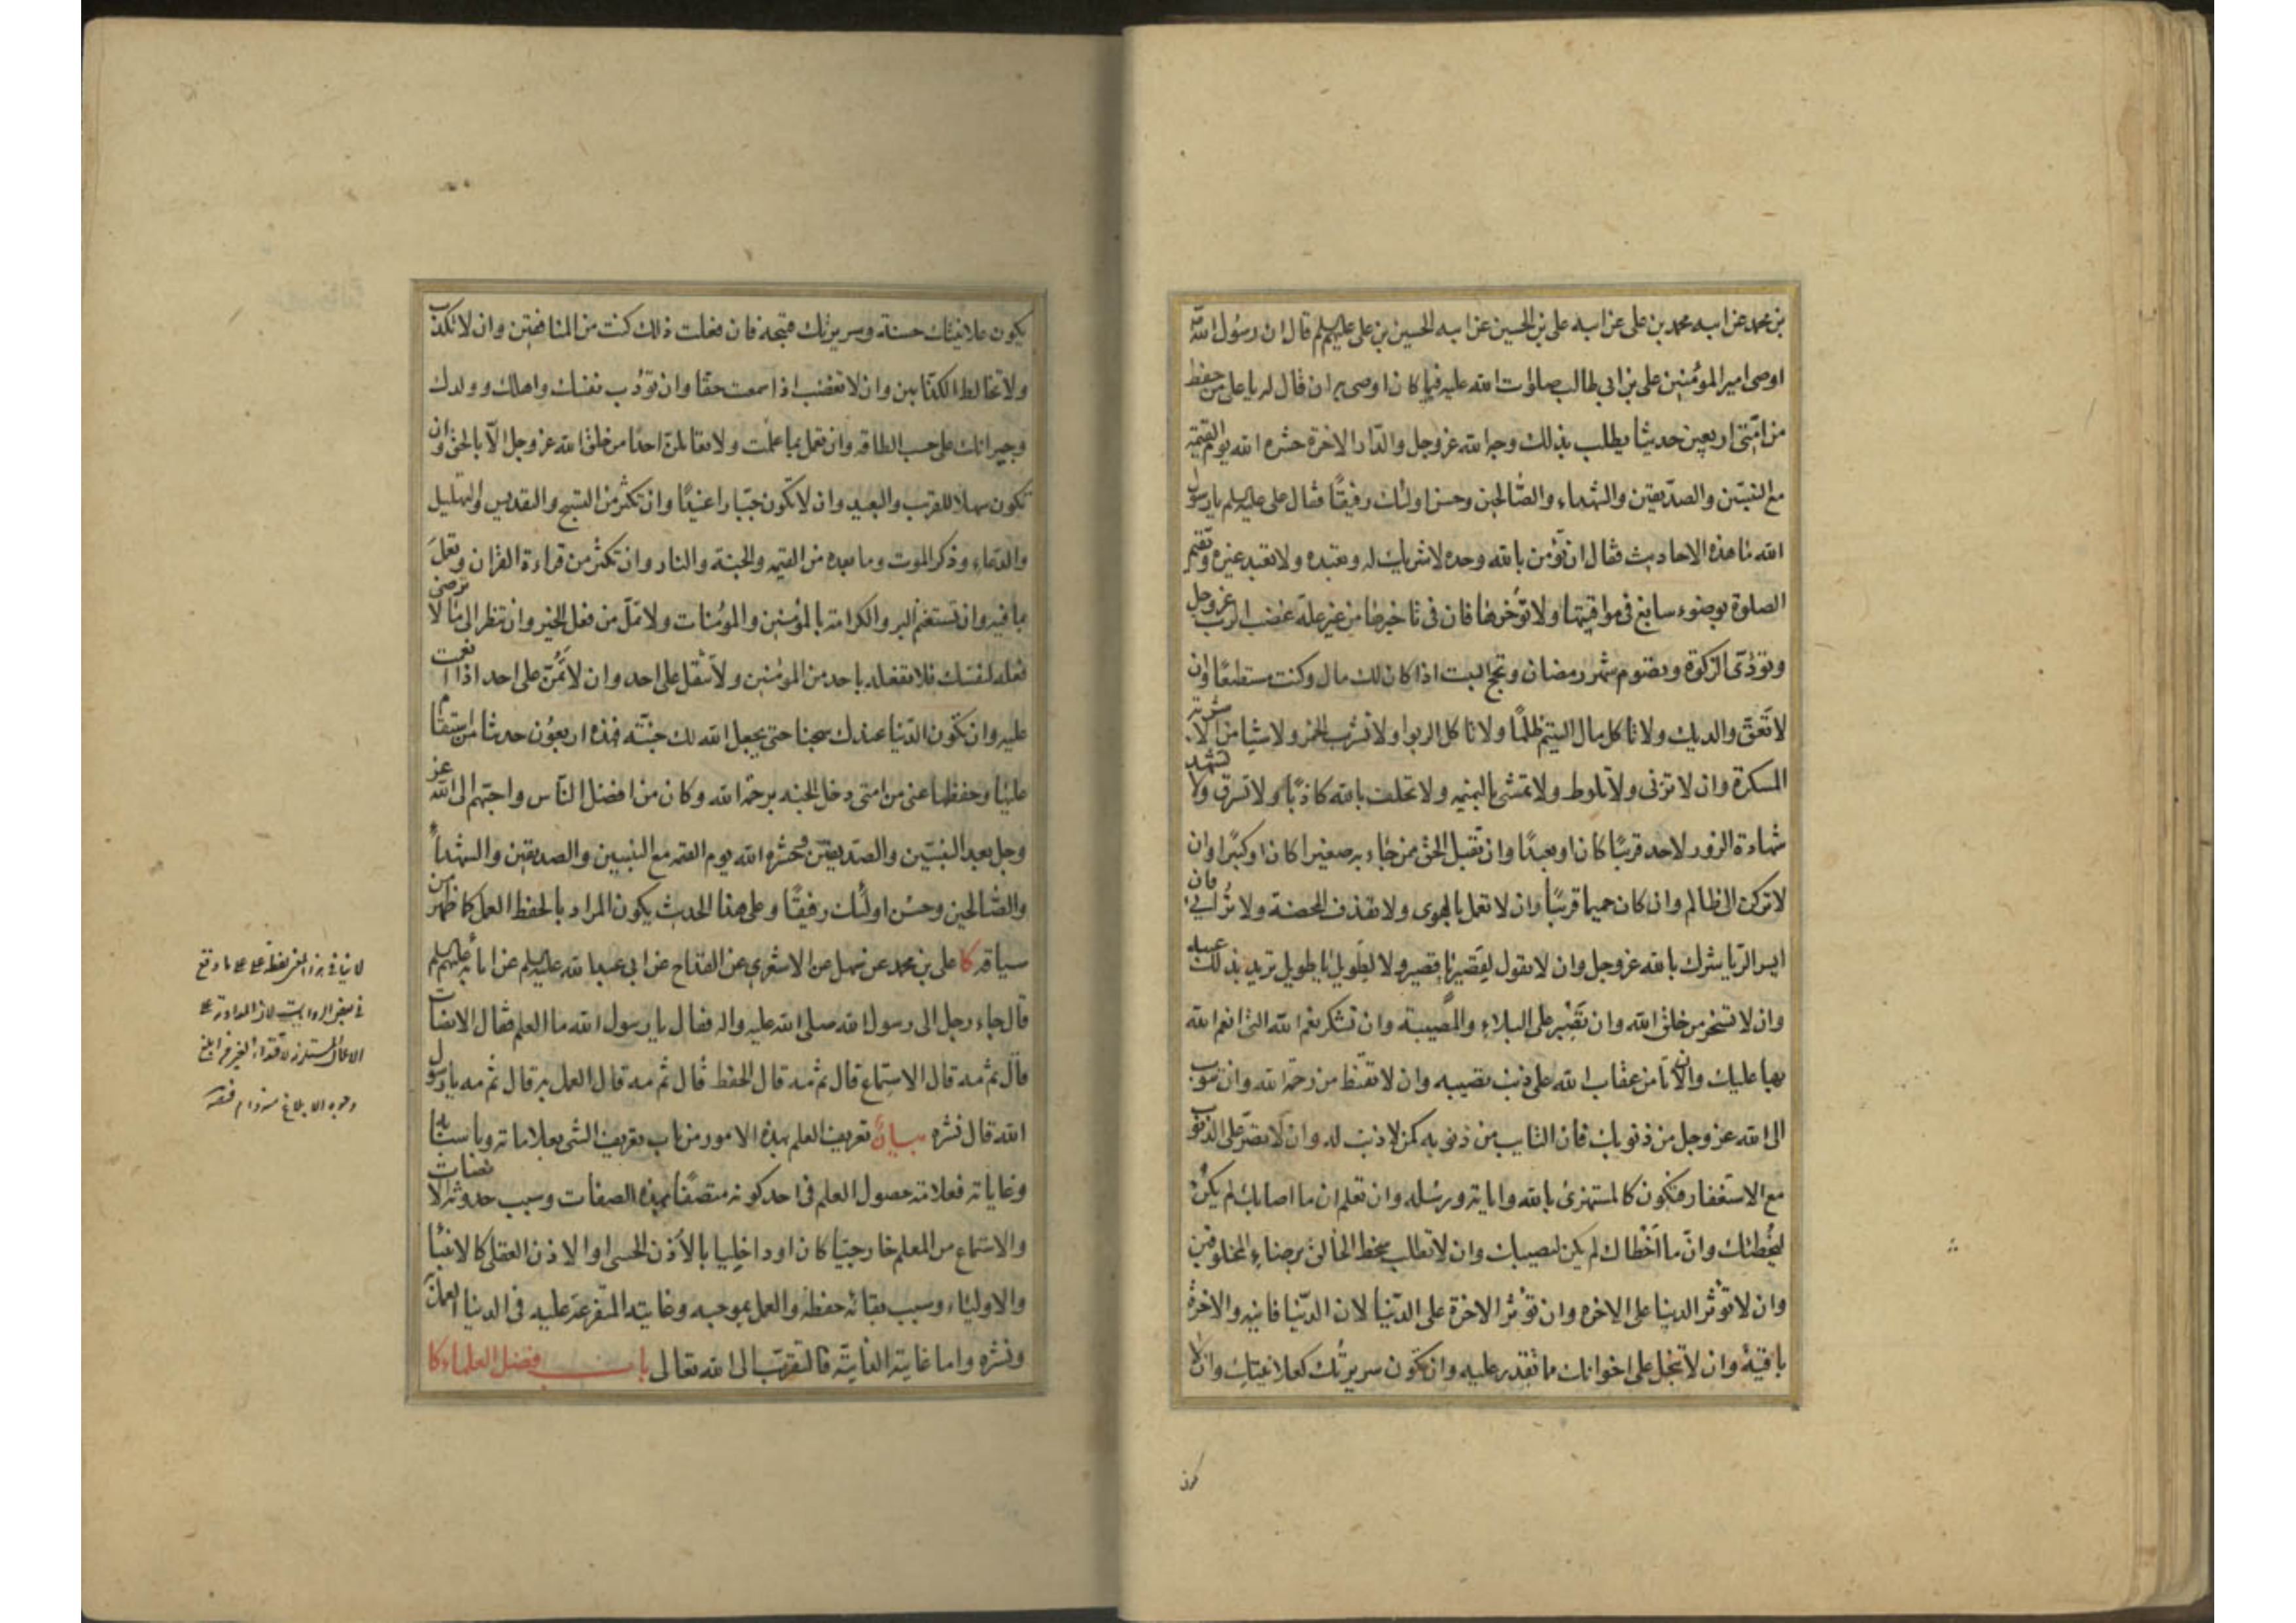 بن محمد عن ابيه محمد بن على عن ابيه على بن الحسين عن ابيه الحسين بن على عليهم السلم قال ان رسول الله
اوصى امير المؤمنين على بن ابي طالب صلوات الله عليه فيما كان اوصى به ان قال له يا على من حفظ
من امتى اربعين حديثا يطلب بذلك وجه الله عز وجل والدار الاخرة حشره الله يوم القيمة
مع النبيين والصديقين والشهداء والصالحين وحسن اولئك رفيقا فقال على عليه السلم يا رسول
الله ما هذه الاحاديث فقال ان تؤمن بالله وحده لا شريك له وتعبده ولا تعبد غيره وتقيم
الصلوة بوضوء سابغ فى مواقيتها ولا تؤخرها فان فى تاخيرها من غير علة غضب الرب عز وجل
وتؤدى الزكوة وتصوم شهر رمضان وتحج البيت اذا كان لك مال وكنت مستطيعا وان
لا تعق والديك ولا تاكل مال اليتيم ظلما ولا تاكل الربوا ولا تشرب الخمر ولا شيئا من الاشربة
المسكرة وان لا تزنى ولا تلوط ولا تمشى بالنميمه ولا تحلف بالله كاذبا ولا تسرق ولا تشهد
شهادة الزور لاحد قريبا كان او بعيدا وان تقبل الحق ممن جاء به صغيرا كان او كبيرا وان
لا تركن الى ظالم وان كان حميما قريبا وان لا تعمل بالهوى ولا تقذف المحصنة ولا ترائى فان
ايسر الريا شرك بالله عز وجل وان لا تقول لقصير يا قصير ولا لطويل يا طويل تريد بذلك عيبه
وان لا تسخر من خلق الله وان تصبر على البلاء والمصيبة وان تشكر نعم الله التى انعم الله
بها عليك وان لا تامن عقاب الله على ذنب تصيبه وان لا تقنط من رحمة الله وان تتوب
الى الله عز وجل من ذنوبك فان التايب من ذنوبه كمن لا ذنب له وان لا تصر على الذنوب
مع الاستغفار فتكون كالمستهزئ بالله واياته ورسله وان تعلم ان ما اصابك لم يكن
ليخطئك وان ما اخطاك لم يكن ليصيبك وان لا تطلب سخط الخالق برضاء المخلوقين
وان لا تؤثر الدنيا على الاخره وان تؤثر الاخرة على الدنيا لان الدنيا فانيه والاخرة
باقية وان لا تبخل على اخوانك ما تقدر عليه وان تكون سريرتك كعلانيتك وان لا
يكون علانيتك حسنة وسريرتك قبيحه فان فعلت ذلك كنت من المنافقين وان لا تكذب
ولا تخالط الكذابين وان لا تغضب اذا سمعت حقا وان تؤدب نفسك واهلك وولدك
وجيرانك على حسب الطاقه وان تعمل بما علمت ولا تعاملن احدا من خلق الله عز وجل الا بالحق وان
تكون سهلا للقريب والبعيد وان لا تكون جبارا عنيدا وان تكثر من التسبيح والتقديس والتهليل
والدعاء وذكر الموت وما بعده من القيمه والجنة والنار وان تكثر من قراءة القران وتعمل
بما فيه وان تستغنم البر والكرامة بالمؤمنين والمؤمنات ولا تمل من فعل الخير وان تنظر الى ما لا ترضى
فعله لنفسك فلا تفعله باحد من المؤمنين ولا تثقل على احد وان لا تمن على احد اذا انعمت
عليه وان تكون الدنيا عندك سجنا حتى يجعل الله لك جنة فهذه اربعون حديثا من استقام
عليها وحفظها عنى من امتى دخل الجنه برحمة الله وكان من افضل الناس واحبهم الى الله عز
وجل بعد النبيين والصديقين وحشره الله يوم القيمه مع النبيين والصديقين والشهداء
والصالحين وحسن اولئك رفيقا وعلى هذا الحديث يكون المراد بالحفظ العمل كما ظهر من
سياقه كا على بن محمد عن سهل عن الاشعرى عن القداح عن ابى عبد الله عليه السلم عن ابائه عليهم السلم
قال جاء رجل الى رسول الله صلى الله عليه واله فقال يا رسول الله ما العلم فقال الانصات
قال ثم مه قال الاستماع قال ثم مه قال الحفظ قال ثم مه قال العمل به قال ثم مه يا رسول
الله قال نشره بيان تعريف العلم بهذه الامور من باب تعريف الشى بعلاماته وباسبابه
وغاياته فعلامة حصول العلم فى احد كونه متصفا بهذه الصفات وسبب حدوثه الانصات
والاستماع من المعلم خارجيا كان او داخليا بالاذن الحسى او الاذن العقلى كالانبياء
والاولياء وسبب بقائه حفظه والعمل بموجبه وغايته المتفرعة عليه فى الدنيا العمل به
ونشره واما غايته الغايية فالتقرب الى الله تعالى باب فضل العلماء كا